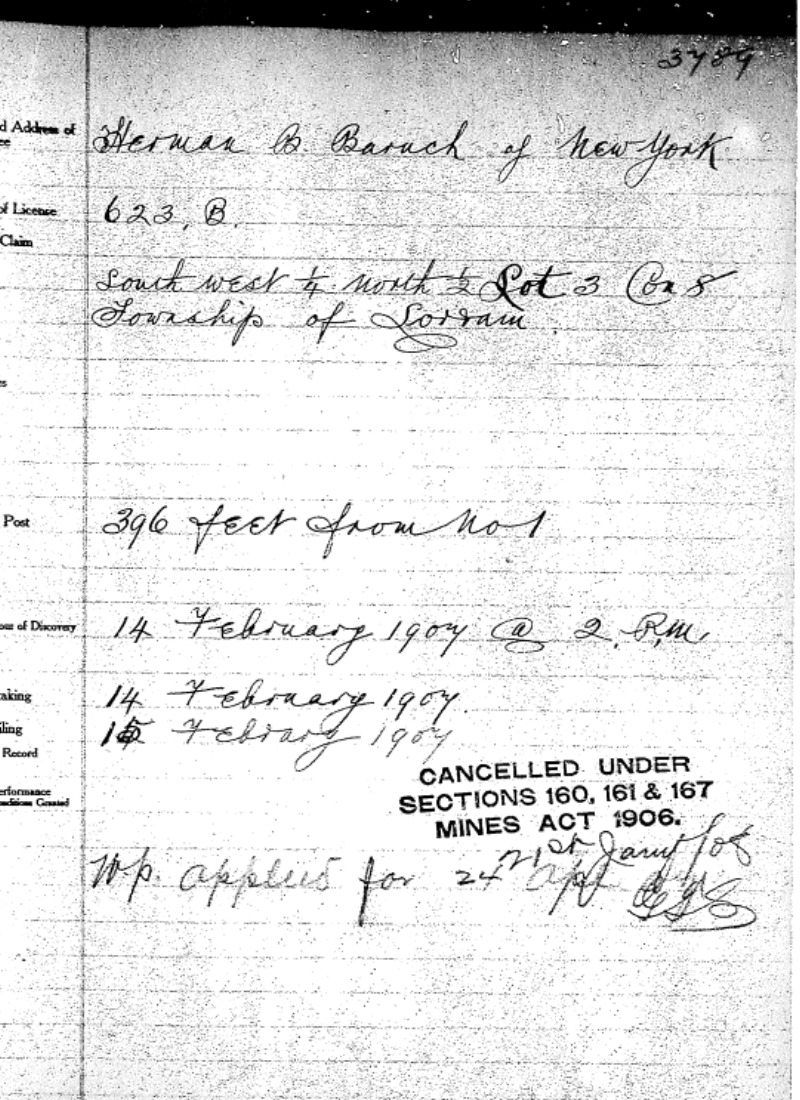 3789
d Address of
ee
Herman B Baruch of New York
of License
623, B.
Claim
South west ¼ north ½ Lot 3 Con 8
Township of Lorrain
es
Post
396 feet from No 1
our of Discovery
14 February 1907 @ 2. P.M.
aking
14 February 1907.
iling
15 Febrary 1907
Record
erformance
onditions Granted
CANCELLED UNDER
SECTIONS 160, 161 & 167
MINES ACT 1906.
21st Jany /08
W.p. applied for 24 Apl